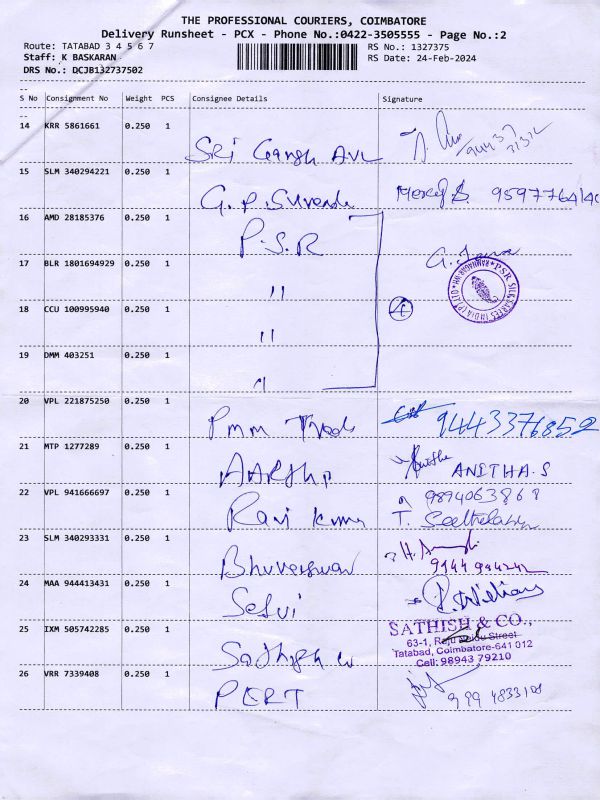 THE PROFESSIONAL COURIERS, COIMBATORE
Delivery Runsheet - PCX - Phone No.:0422-3505555 - Page No.:2
Route: TATABAD 3 4 5 6 7
RS No.: 1327375
Staff: K BASKARAN
RS Date: 24-Feb-2024
DRS No.: DCJB132737502
S No Consignment No Weight PCS Consignee Details Signature
14 KRR 5861661 0.250 1
Sri Ganesh AVL
15 SLM 340294221 0.250 1
G.P. Surendr 
16 AMD 28185376 0.250 1
P.S.R
17 BLR 1801694929 0.250 1
"
PSR SILK SAREES INDIA (P) LTD
18 CCU 100995940 0.250 1
" 4
19 DMM 403251 0.250 1
"
20 VPL 221875250 0.250 1
Pmm Trade 9443376852
21 MTP 1277289 0.250 1
AARthp ANITHA.S
22 VPL 941666697 0.250 1
9894063868
Ravi kumar T.
23 SLM 340293331 0.250 1
Bhuvaneshwar
24 MAA 944413431 0.250 1
Selvi
25 IXM 505742285 0.250 1
SATHISH & CO.,
63-1, Raju Naidu Street
Tatabad, Coimbatore-641 012
Cell: 98943 79210
26 VRR 7339408 0.250 1
PERT